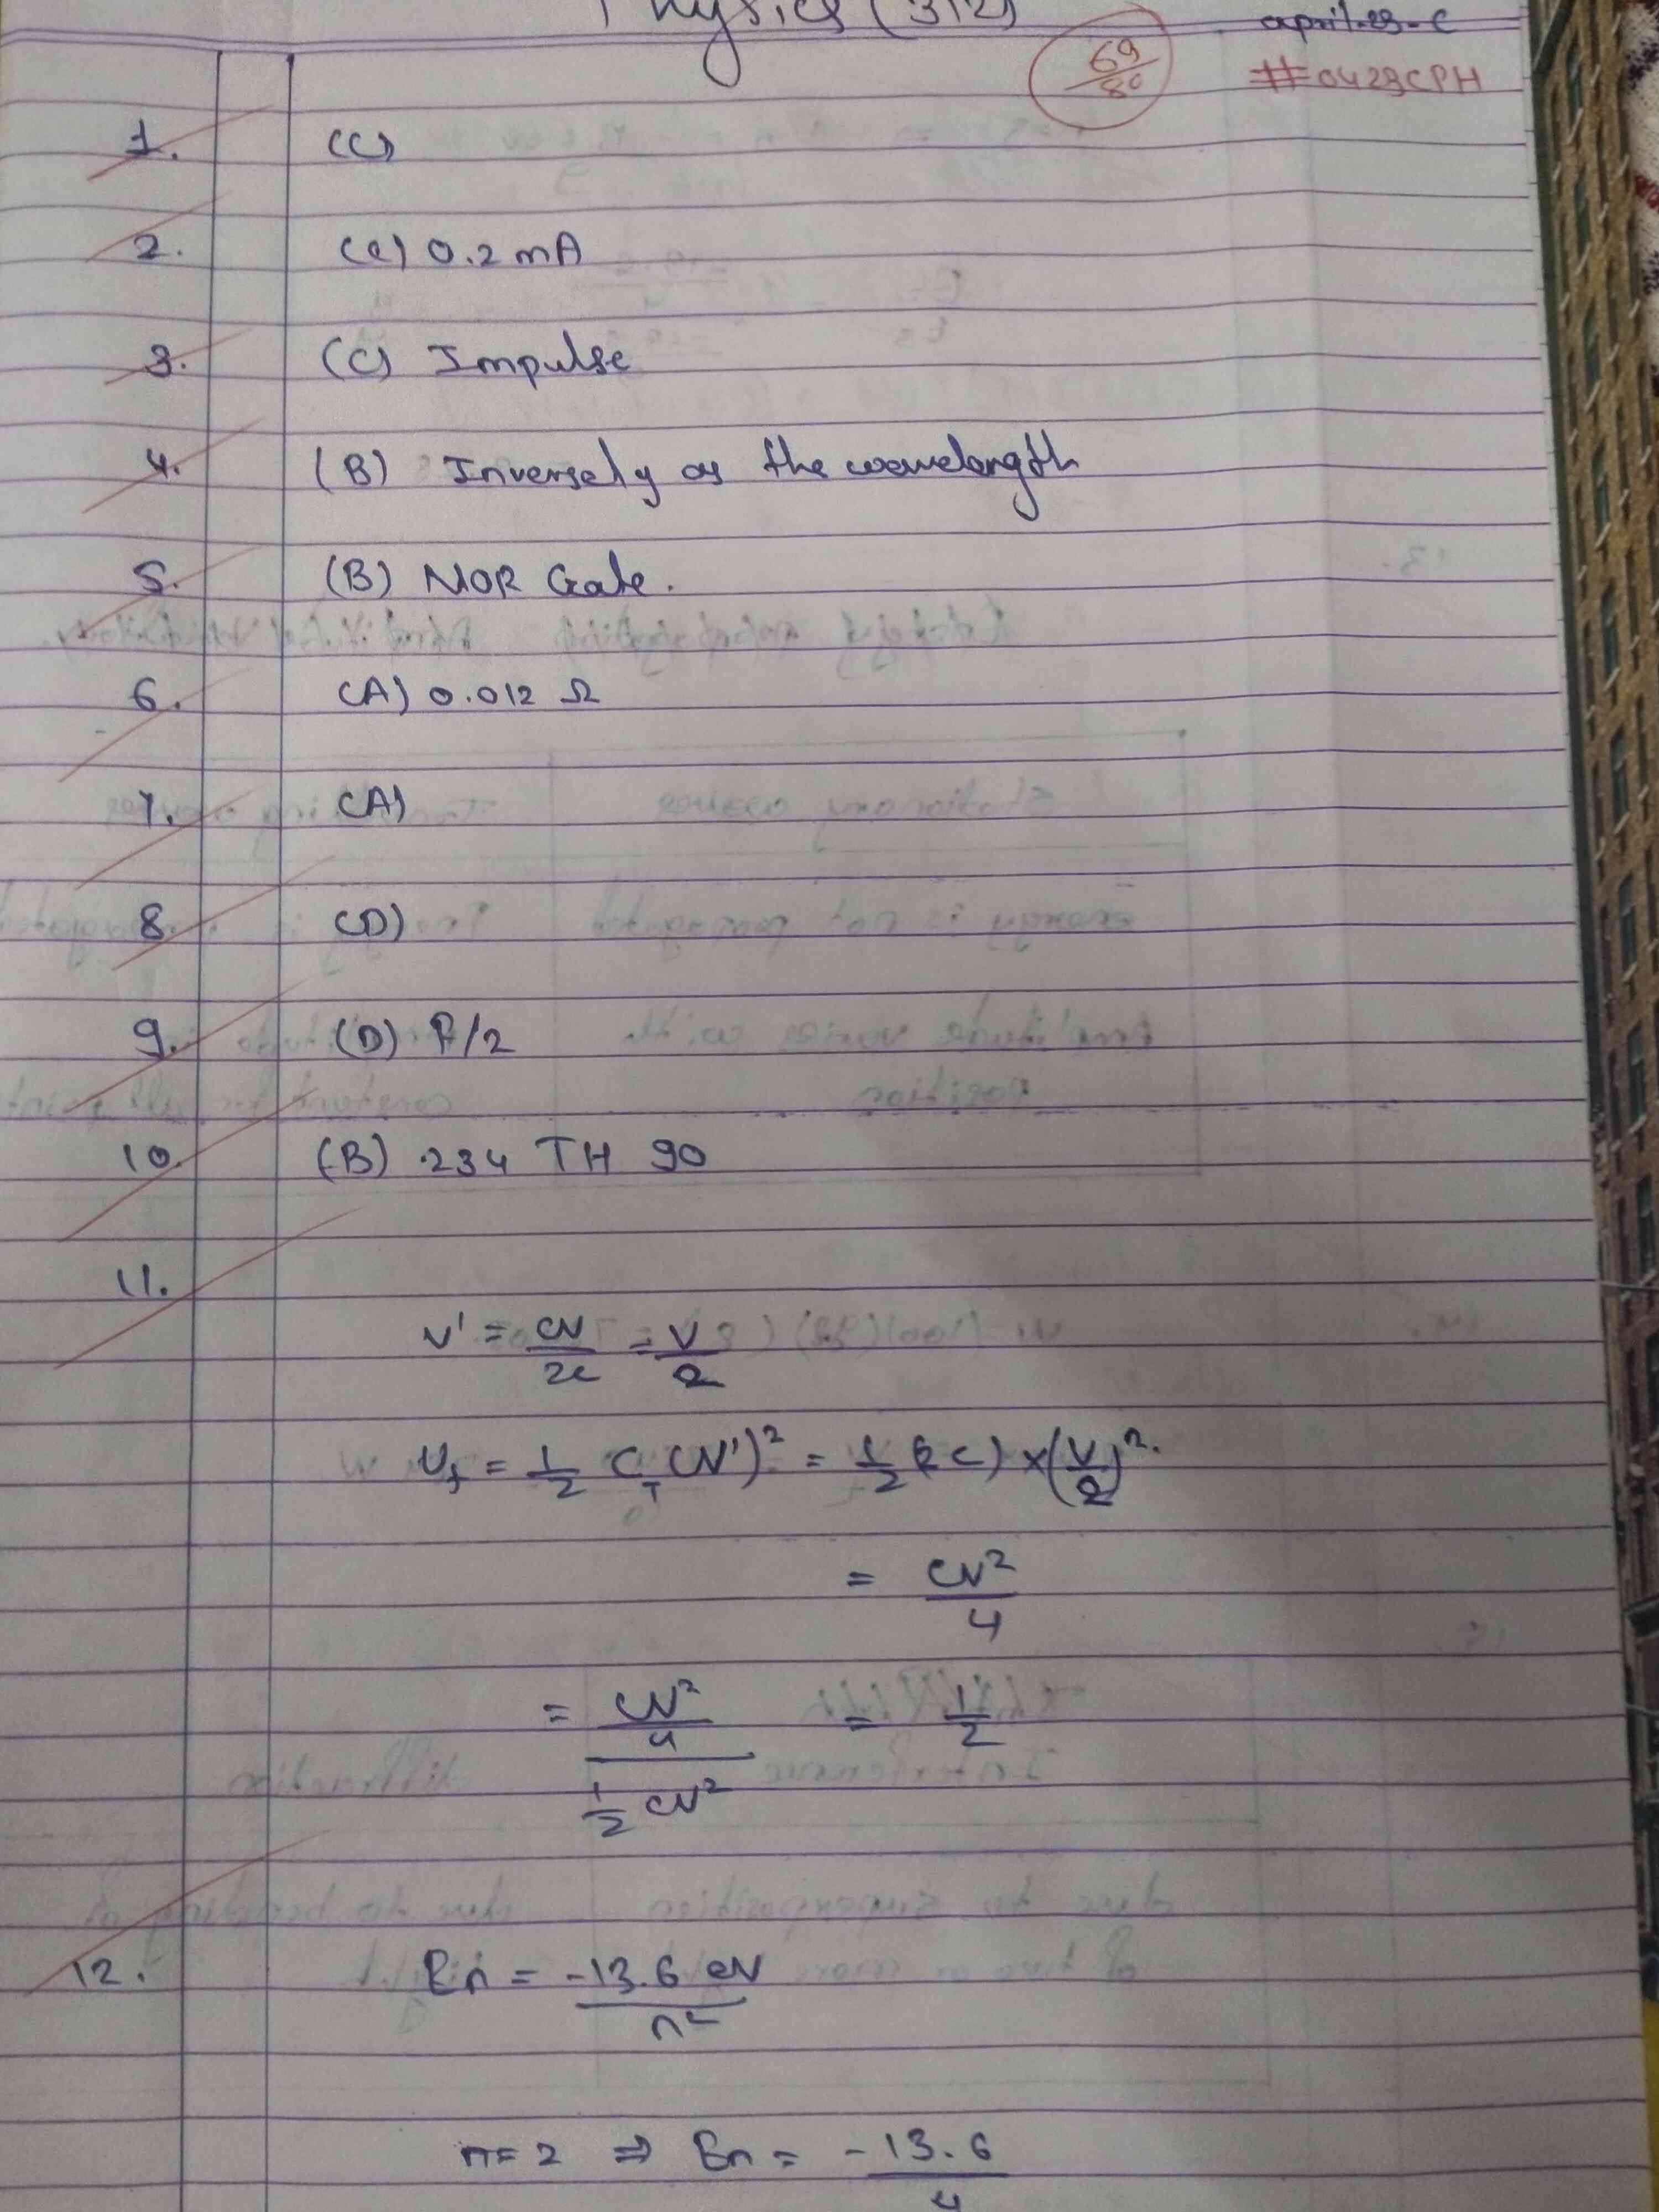 Physics (312)
april-23-C
69/80
#0423CPH
1. (C)
2. (C) 0.2 mA
3. (C) Impulse
4. (B) Inversely as the wavelength
5. (B) NOR Gate.
6. (A) 0.012 Ω
7. (A)
8. (D)
9. (D) R/2
10. (B) 234 TH 90
11.
V' = CV/2C = V/2
Uf = 1/2 C_T (V')² = 1/2 (2C) × (V/2)².
= CV²/4
= (CV²/4)/(1/2 CV²) = 1/2
12. En = -13.6 eV/n²
n = 2 ⇒ En = -13.6/4